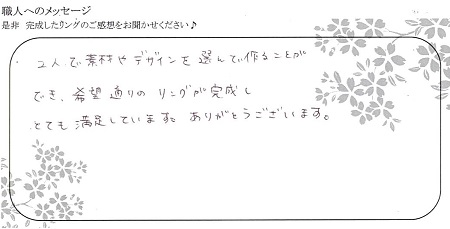 職人へのメッセージ
是非 完成したリングのご感想をお聞かせください♪
2人で素材やデザインを選んで作ることが
でき、希望通りの リングが完成し
とても 満足しています。ありがとうございます。